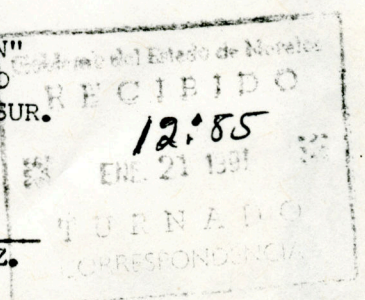 N"
Gobierno del Estado de Morelos
D
RECIBIDO
SUR.
12:55
ENE. 21 1991
TURNADO
Z.
CORRESPONDENCIA